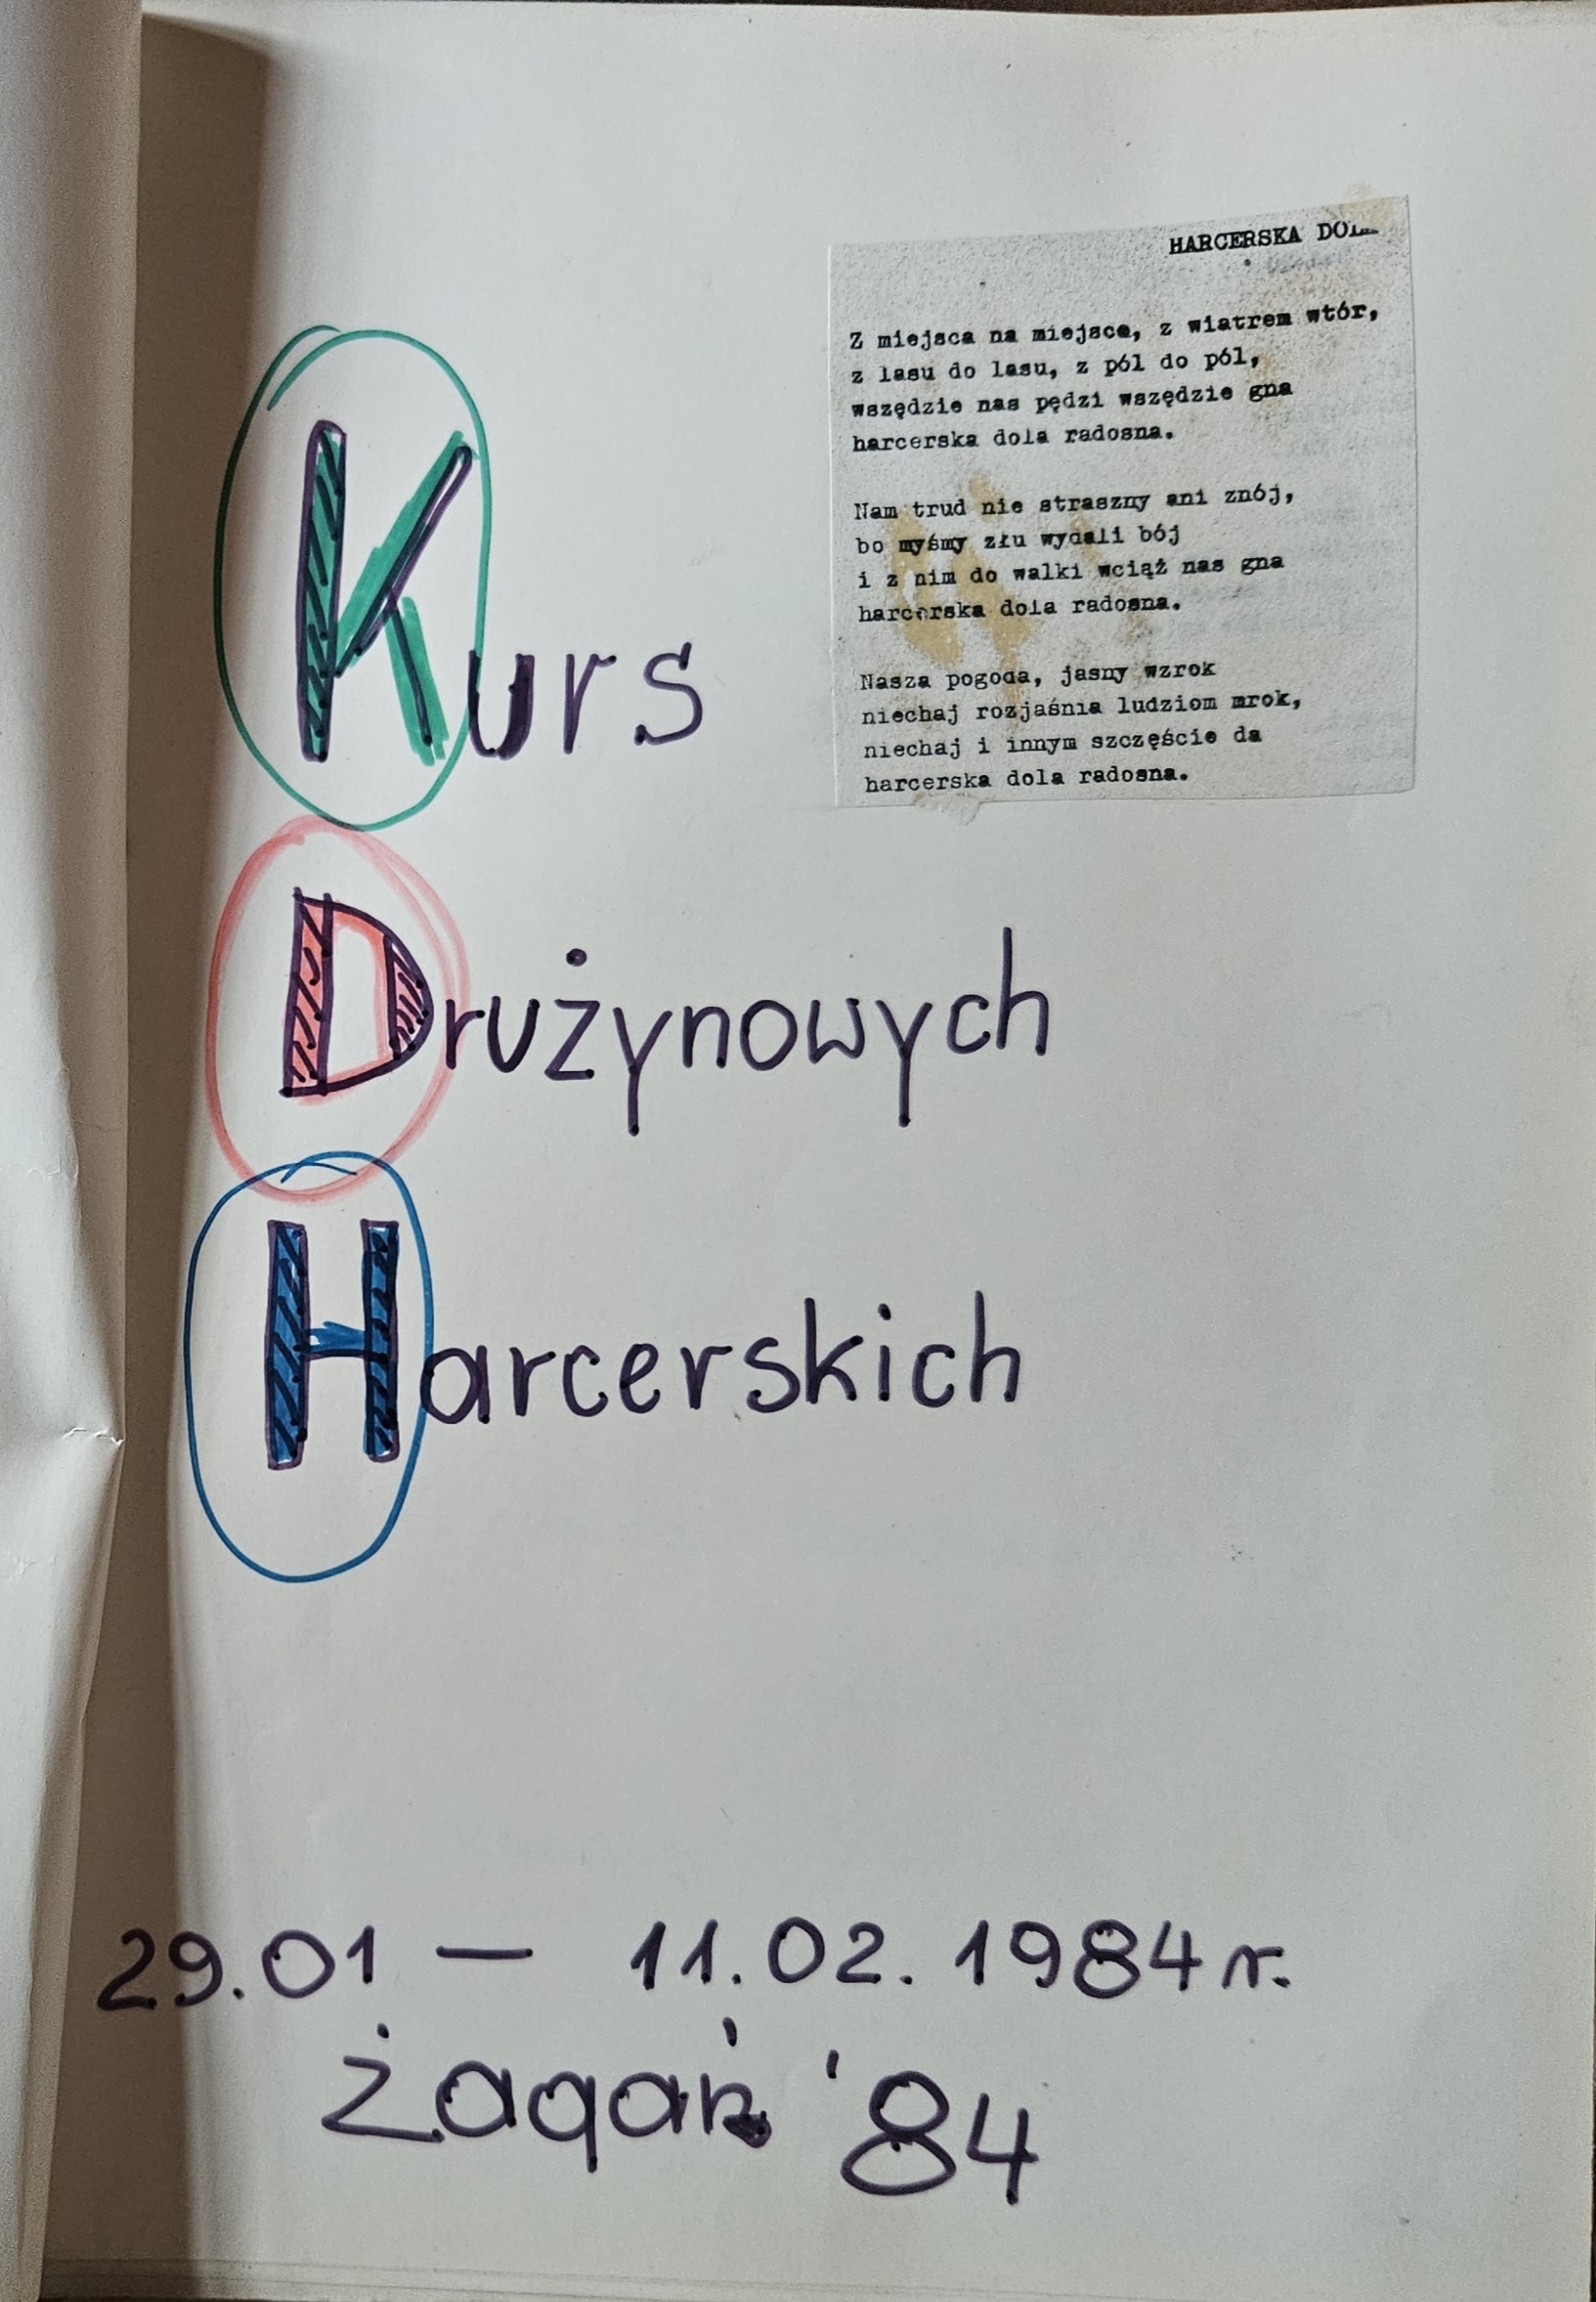 HARCERSKA DOLA
Z miejsca na miejsce, z wiatrem wtór,
z lasu do lasu, z pól do pól,
wszędzie nas pędzi wszędzie gna
harcerska dola radosna.
Nam trud nie straszny ani znój,
bo myśmy złu wydali bój
i z nim do walki wciąż nas gna
harcerska dola radosna.
Nasza pogoda, jasny wzrok
niechaj rozjaśnia ludziom mrok,
niechaj i innym szczęście da
harcerska dola radosna.
Kurs
Drużynowych
Harcerskich
29.01 — 11.02. 1984 r.
Żagań '84